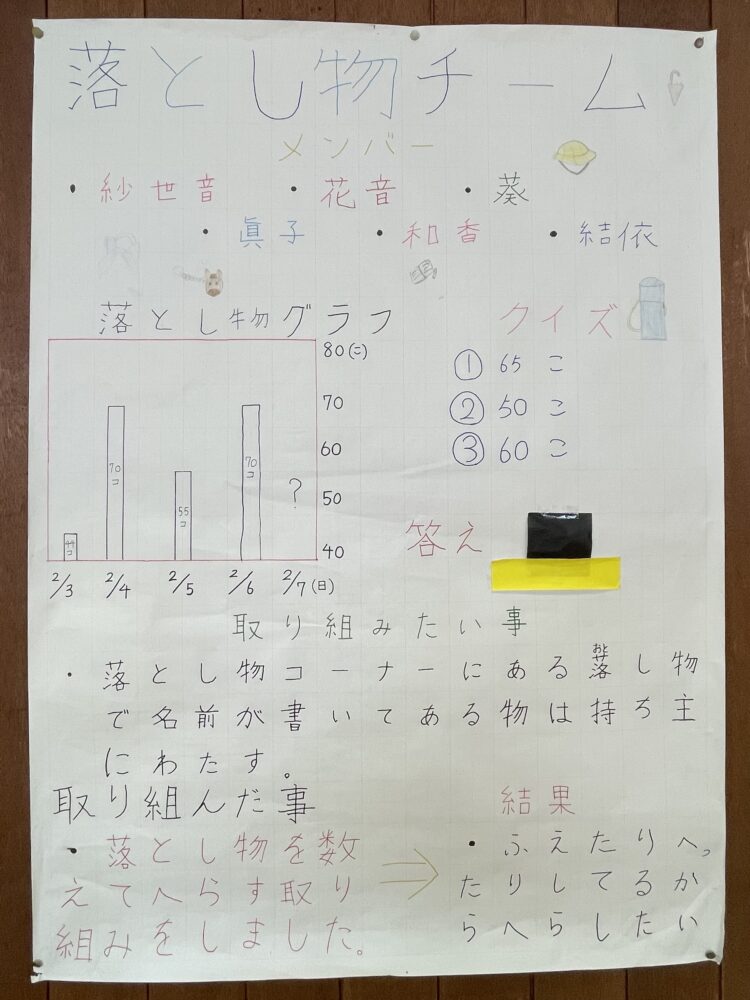 落とし物チーム
メンバー
・紗世音 ・花音 ・葵
・眞子 ・和香 ・結依
落とし物グラフ
80(こ)
70
60
50
40
44コ
70コ
55コ
70コ
?
2/3 2/4 2/5 2/6 2/7(日)
クイズ
① 65 こ
② 50 こ
③ 60 こ
答え
取り組みたい事
・落とし物コーナーにある落し物
おと
で名前が書いてある物は持ち主
にわたす。
取り組んだ事
・落とし物を数
えてへらす取り
組みをしました。
結果
・ふえたりへっ
たりしてるか
らへらしたい